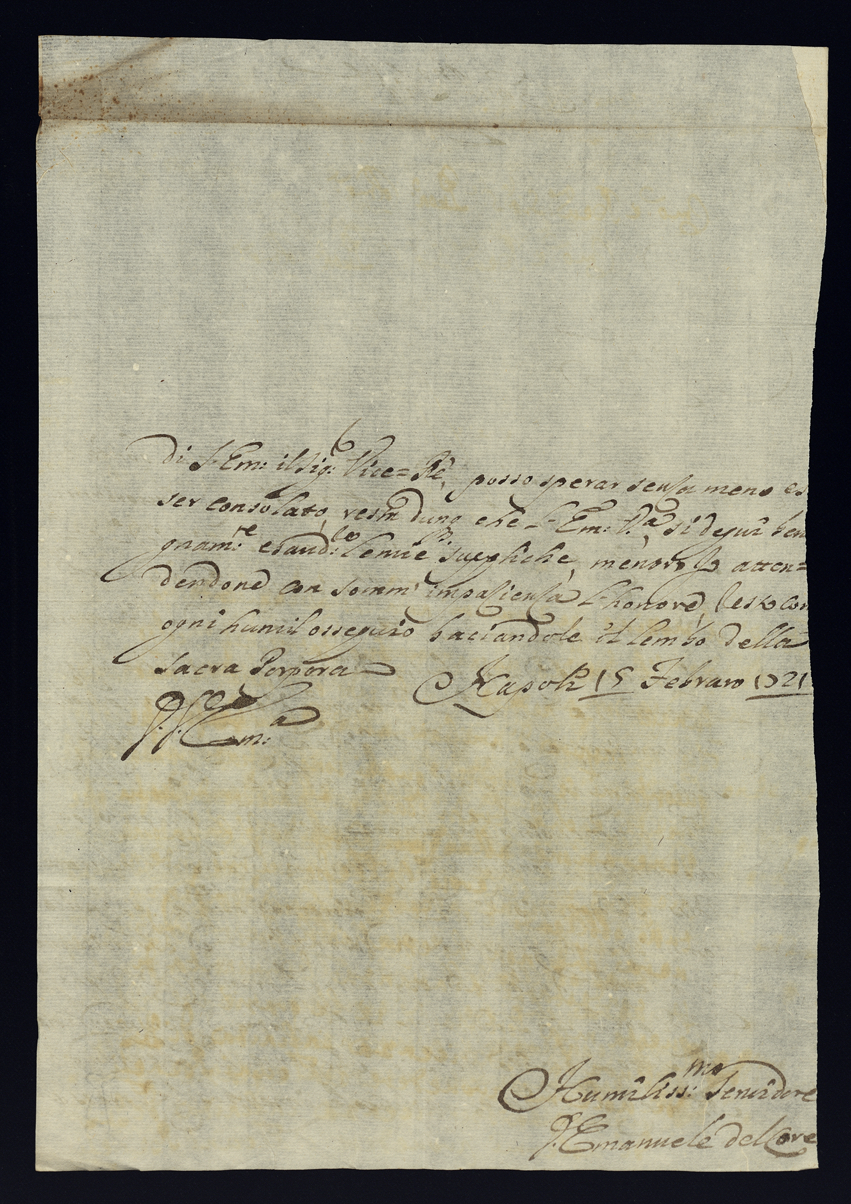 di S. Em: il Sig: Vice=Rè, posso sperar senza meno es
ser consolato, resta dunq che S. Em: V.a si degni beni
gnam.te esaud: le mie suppliche, mentr'io atten=
dendone con somm' impazienza l'honore, resto con
ogni humil ossequio baciandole il lembo della
Sacra Porpora Napoli 15 Febraro 1721
V. Em.a
Humiliss:mo Servidore
F. Emanuele del Core